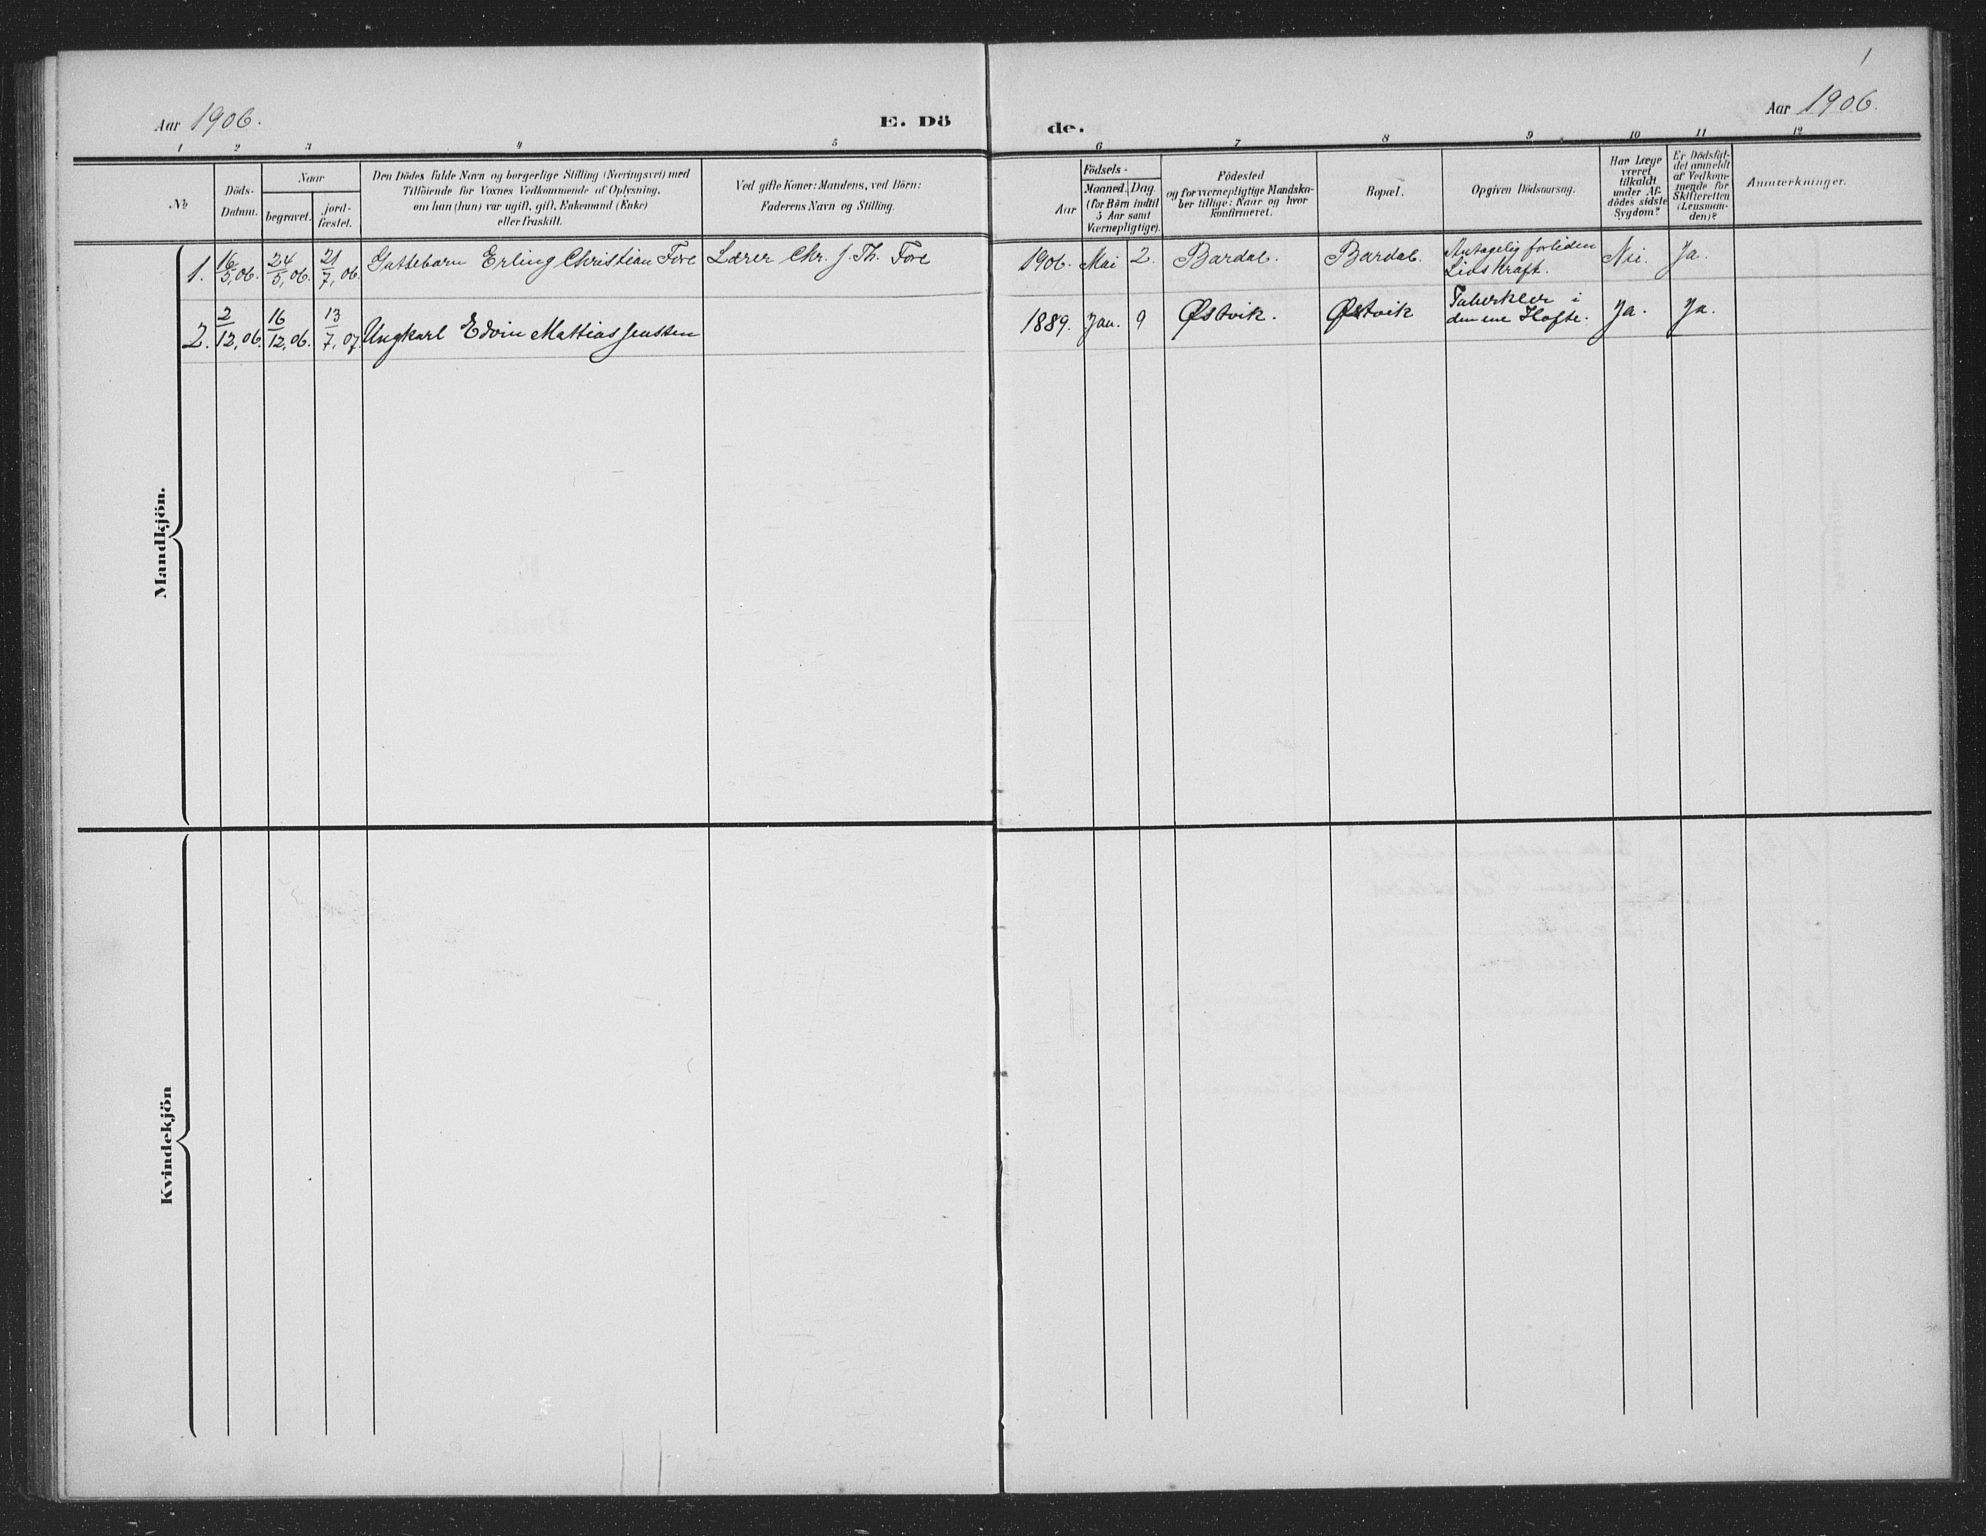 1
Aar 1906.
E. Dö
de.
Aar 1906.
1 2 3 4 5 6 7 8 9 10 11 12
No
Döds-
Datum.
Naar
begravet.
jord-
fæstet.
Den Dödes fulde Navn og borgerlige Stilling (Næringsvei) med
Tilföiende for Voxnes Vedkommende af Oplysning,
om han (hun) var ugift, gift, Enkemand (Enke)
eller fraskilt.
Ved gifte Koner: Mandens, ved Börn:
Faderens Navn og Stilling.
Födsels-
Aar
Maaned. Dag.
(for Börn indtil
5 Aar samt
Værnepligtige).
Födested
og for værnepligtige Mandska-
ber tillige: Naar og hvor
konfirmeret.
Bopæl.
Opgiven Dödsaarsag.
Har Læge
været
tilkaldt
under Af-
dödes sidste
Sygdom?
Er Dödsfal-
det anmeldt
af Vedkom-
mende for
Skifteretten
(Lensman-
den)?
Anmærkninger.
Mandkjön.
1. 16/5, 06. 24/5, 06. 21/7, 06. Guttebarn Erling Christian Fore Lærer Chr. J. Th. Fore 1906. Mai 2. Bardal. Bardal. Antagelig forliden
Livskraft. Nei. Ja.
2. 2/12, 06. 16/12, 06. 13/7, 07. Ungkarl Edvin Mattias Jenssen 1889. Jan. 9 Østvik. Østvik Tuberkler i
den ene Hofte. Ja. Ja.
Kvindekjön